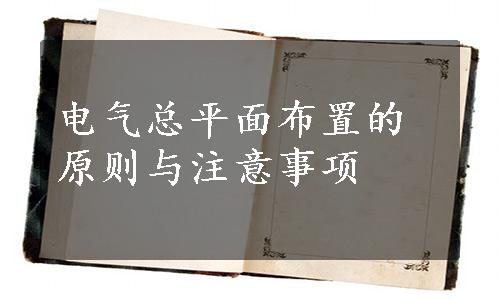 电气总平面布置的
原则与注意事项